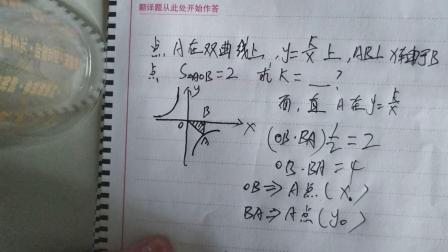 翻译题从此处开始作答
点 A在双曲线上, y=k/x 上, AB⊥X轴于B
点 S△AOB=2 求 K=__?
y
B
O
X
A
而,且 A在y=k/x
(OB·BA)1/2=2
OB·BA=4
OB⇒A点(X₀)
BA⇒A点(y₀)